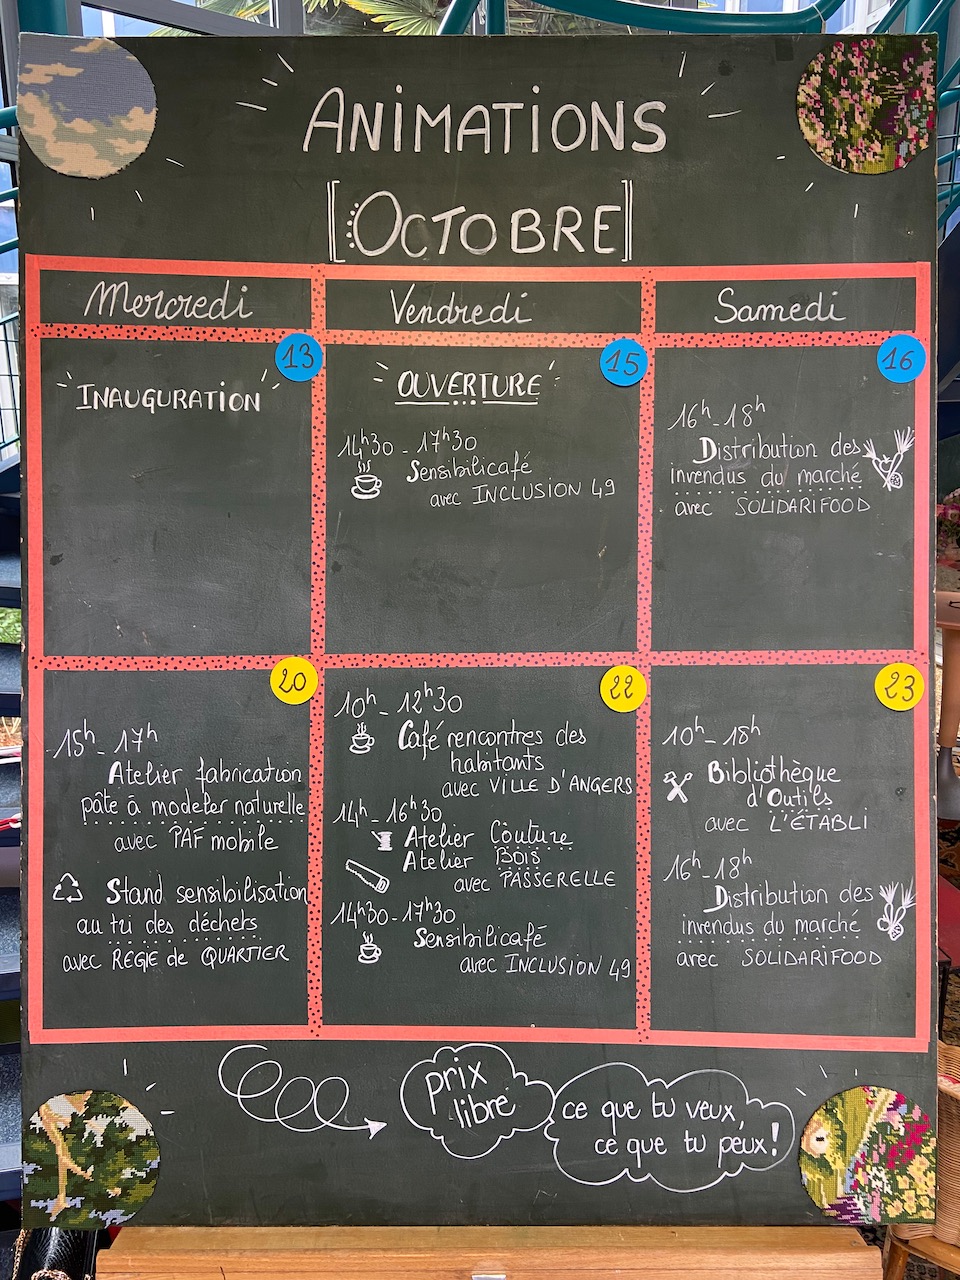 ANiMATiONS
[OCTOBRE]
Mercredi
Vendredi
Samedi
13
INAUGURATION
15
OUVERTURE
14h30 - 17h30
Sensibilicafé
avec INCLUSION 49
16
16h - 18h
Distribution des
invendus du marché
avec SOLIDARIFOOD
20
15h - 17h
Atelier fabrication
pâte à modeler naturelle
avec PAF mobile
Stand sensibilisation
au tri des déchets
avec RÉGIE de QUARTIER
22
10h - 12h30
Café rencontres des
habitants
avec VILLE D'ANGERS
14h - 16h30
Atelier Couture
Atelier Bois
avec PASSERELLE
14h30 - 17h30
Sensibilicafé
avec INCLUSION 49
23
10h - 18h
Bibliothèque
d'Outils
avec L'ÉTABLI
16h - 18h
Distribution des
invendus du marché
avec SOLIDARIFOOD
prix
libre
ce que tu veux,
ce que tu peux!